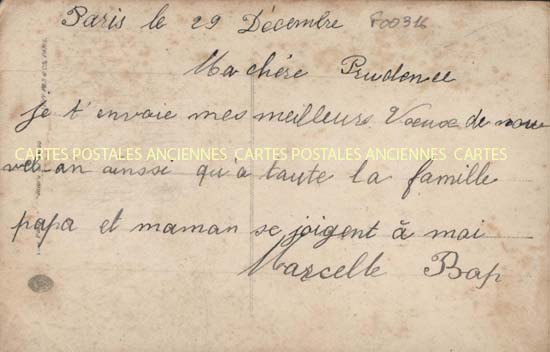 Paris le 29 Décembre P00316
Ma chère Prudence
je t'envoie mes meilleurs Voeux de nou
CARTES POSTALES ANCIENNES CARTES POSTALES ANCIENNES CARTES
vel-an ainssi qu'à toute la famille
papa et maman se joigent à moi
Marcelle Bap